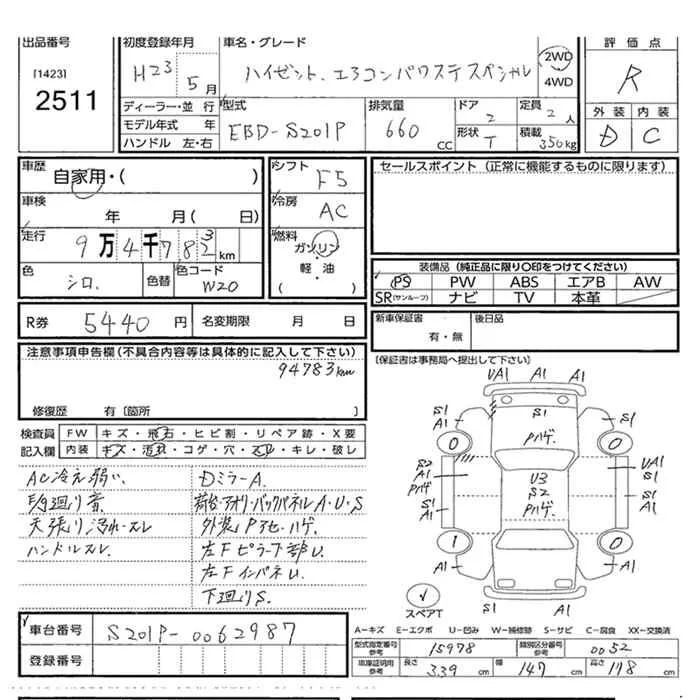 出品番号
[1423]
2511
初度登録年月
H23 5月
車名・グレード
ハイゼット、エアコンパワステスペシャル
2WD
4WD
評価点
R
外装 内装
D C
ディーラー・並行
モデル年式 年
ハンドル 左・右
型式
EBD-S201P
排気量
660 CC
ドア
2
形状
T
定員
2人
積載
350kg
車歴
自家用・( )
車検
年 月( 日)
走行
9万4千783km
色
シロ.
色替
色コード
W20
シフト
F5
冷房
AC
燃料
ガソリン
軽・油
( )
セールスポイント (正常に機能するものに限ります)
装備品 (純正品に限り〇印をつけてください)
PS PW ABS エアB AW
SR(サンルーフ) ナビ TV 本革
R券 5440円
名変期限 月 日
新車保証書
有・無
後日品
(保証書は事務局へ提出して下さい)
注意事項申告欄(不具合内容等は具体的に記入して下さい)
94783km
修復歴 有〔箇所 〕
検査員
記入欄
FW キズ・飛石・ヒビ割・リペア跡・X要
内装 キズ・汚れ・コゲ・穴・・キレ・破レ
AC冷え弱い.
廻り音
天張り汚れ・スレ
ハンドルスレ.
DミラーA.
荷台・アオリ・バックパネルA・U・S
外装Pアセ・ハゲ.
左Fピラー下部U.
左FインパネU.
下廻りS.
UA1 A1 A1
S1
A1
S1
Pハゲ.
S1
A1
0 0
S2
A1
Pハゲ
U3
S2
Pハゲ.
UA1
S1
A1
S1
A1
1 0
A1 A1
スペアT
S1 A1
A-キズ E-エクボ U-凹み W-補修跡 S-サビ C-腐食 XX-交換済
車台番号 S201P-0062987
登録番号
型式指定番号
参考
15978
類別区分番号
参考
0052
車庫証明用
参考
長さ 339cm 幅 147cm 高さ 178cm